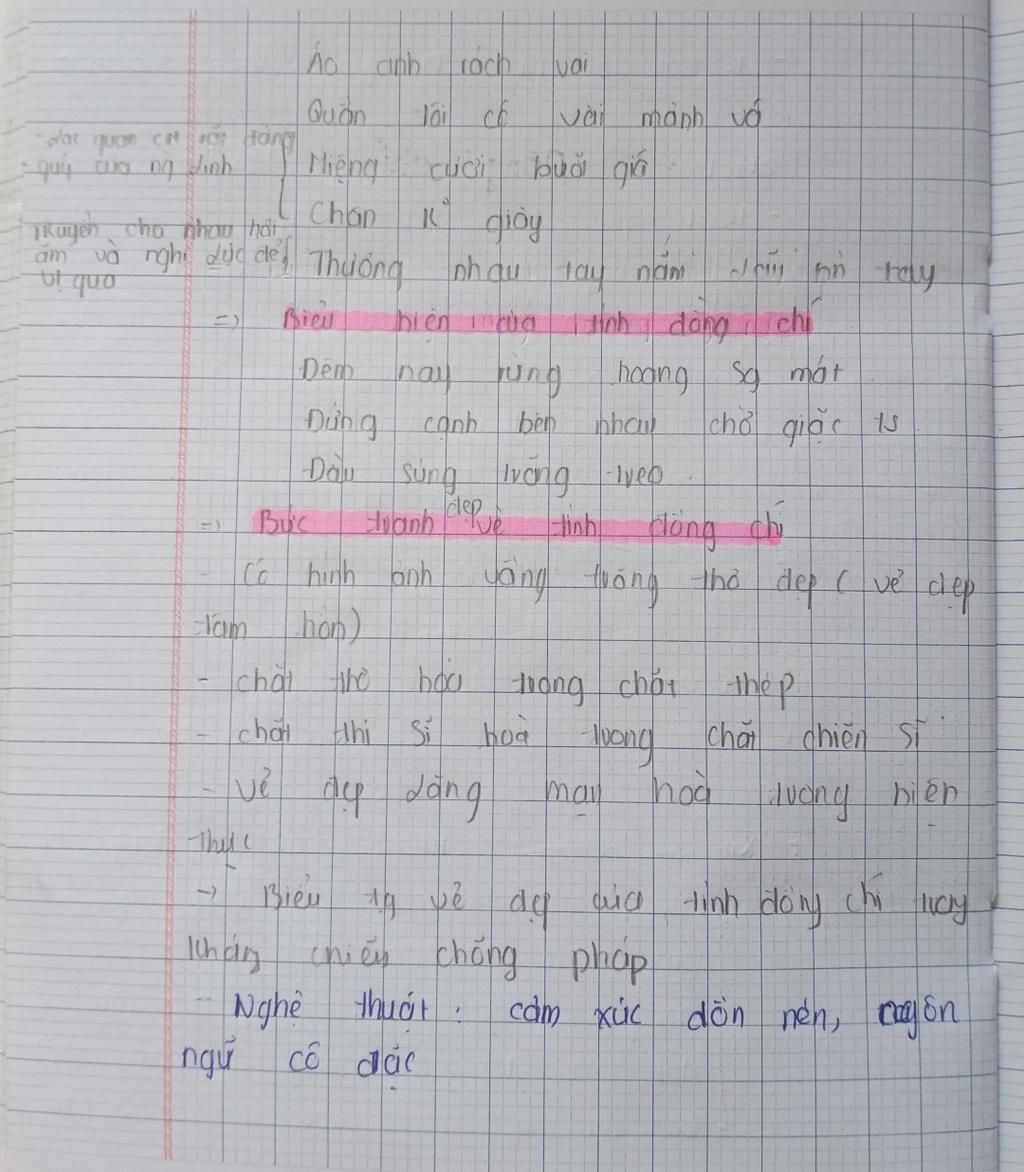 Áo anh rách vai
Quần tôi có vài mảnh vá
Miệng cười buốt giá
Chân k giày
Thương nhau tay nắm lấy bàn tay
quý của ng lính
truyền cho nhau hơi
ấm và nghị lực để
vị qua
=> Biểu hiện của tình đồng chí
Đêm nay rừng hoang sg mốt
Đứng cạnh bên nhau chờ giặc ts
Đầu súng trăng treo.
=> Bức tranh đẹp về tình đồng chí
- Có hình ảnh vầng trăng thơ đẹp ( vẻ đẹp
tâm hồn)
- chất thơ hoà trong chất thép
- chất thi sĩ hoà trong chất chiến sĩ
- vẻ đẹp lãng mạn hoà trong hiện
thực
-> Biểu tg vẻ đẹp của tình đồng chí trong
kháng chiến chống pháp
- Nghệ thuật : cảm xúc dồn nén, ngôn
ngữ cô đặc